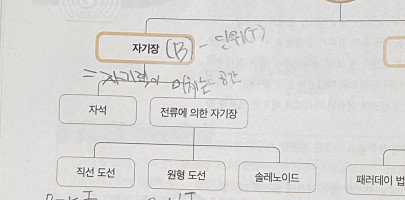 자기장 (B) - 단위(T)
⇒ 자기력이 미치는 공간
자석 전류에 의한 자기장
직선 도선 원형 도선 솔레노이드 패러데이 법